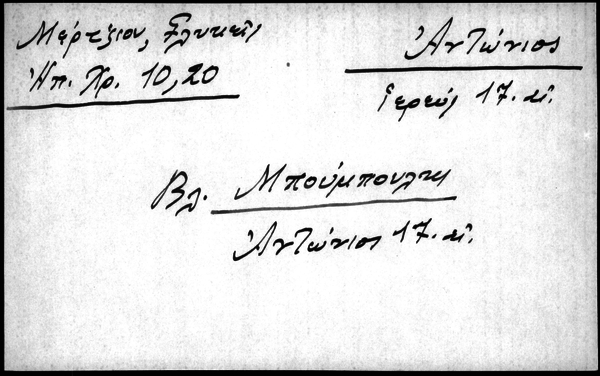 Μέρτζιου, Γλυκεῖς
Ἠπ. Χρ. 10,20
Ἀντώνιος
Ἱερεύς 17. αἰ.
Βλ. Μπούμπουλης
Ἀντώνιος 17. αἰ.